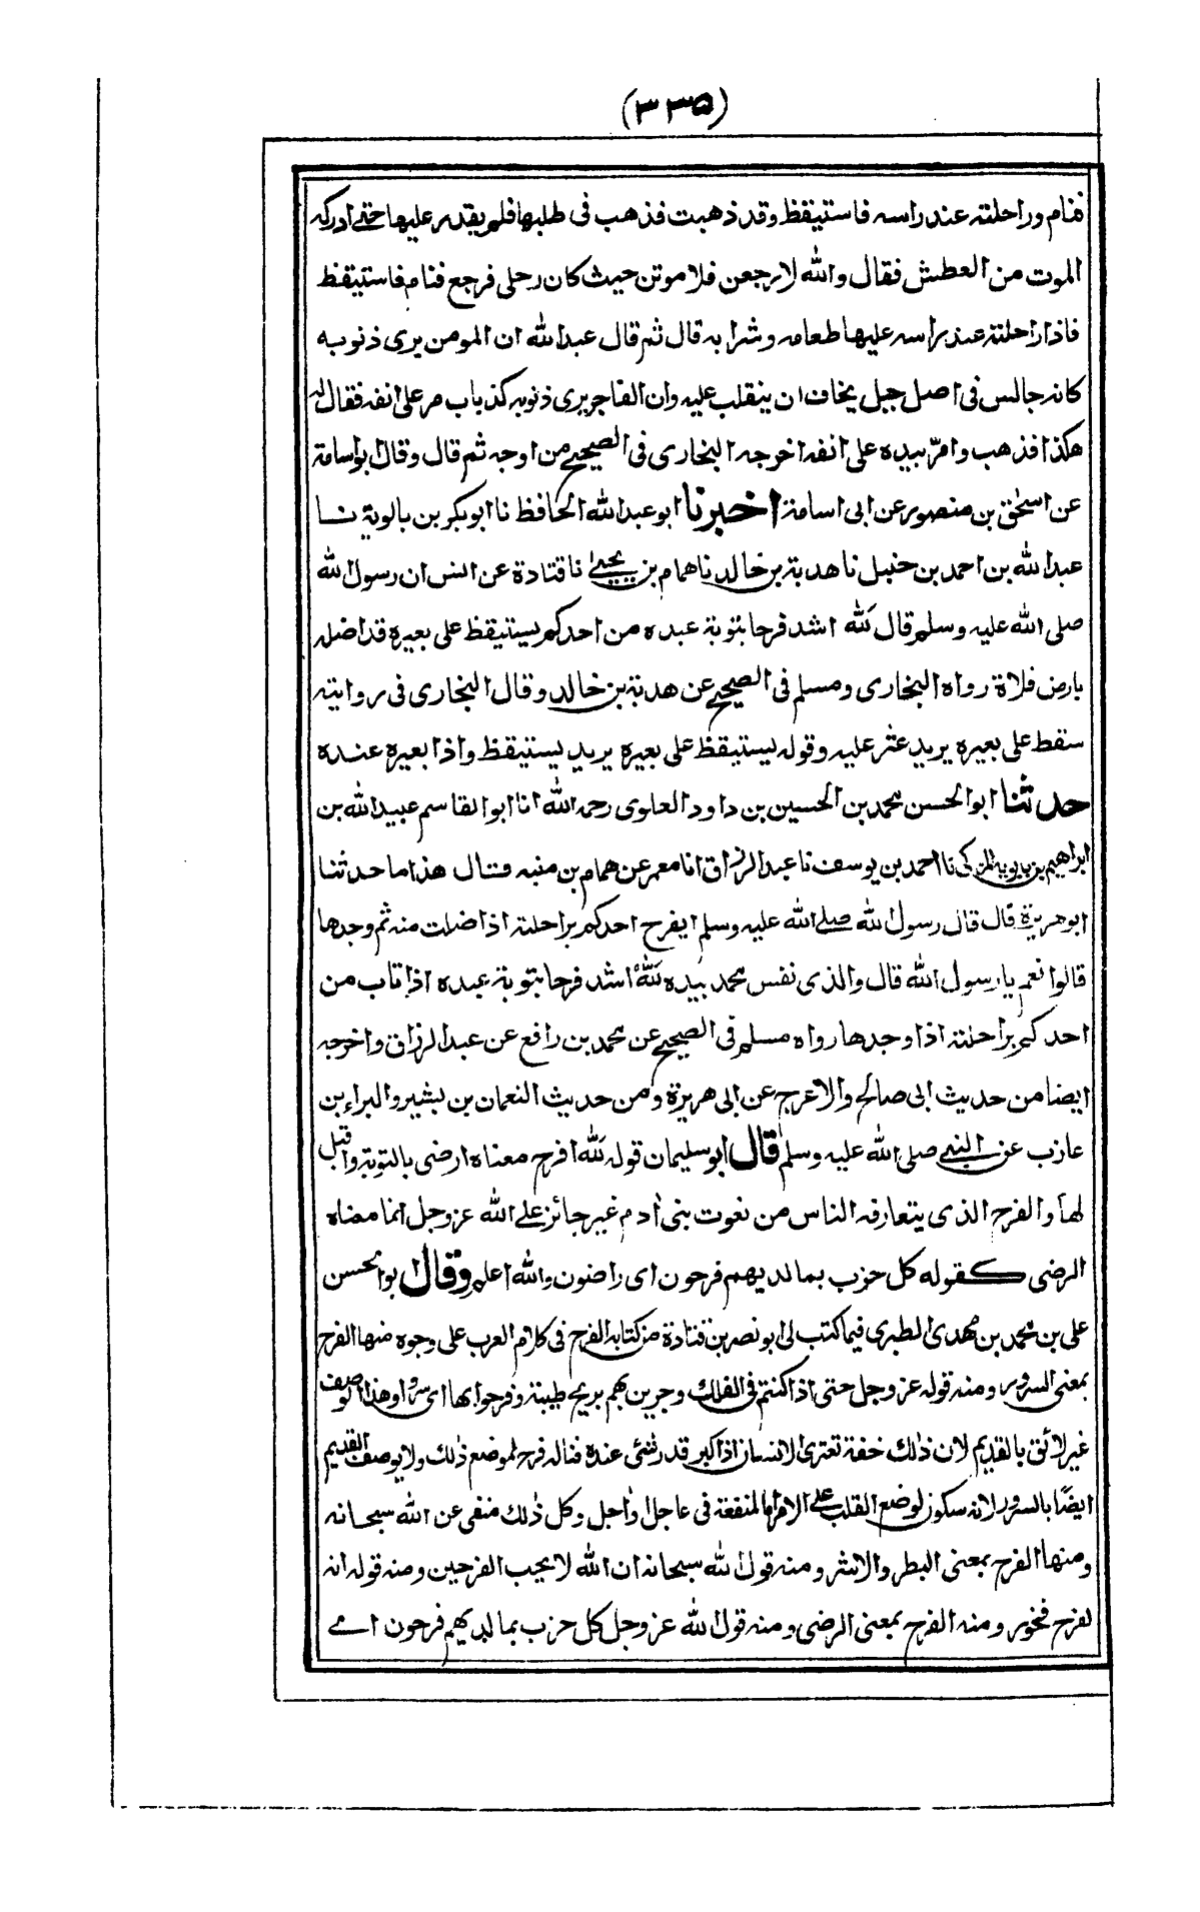 (٣٣٥)
فنام وراحلته عند راسه فاستيقظ وقد ذهبت فذهب فى طلبها فلم يقدر عليها حتى ادركه
الموت من العطش فقال والله لارجعن فلاموتن حيث كان رحلى فرجع فنام فاستيقظ
فاذا راحلته عند راسه عليها طعامه وشرابه قال ثم قال عبدالله ان المومن يرى ذنوبه
كانه جالس فى اصل جبل يخاف ان ينقلب عليه وان الفاجر يرى ذنوبه كذباب مر على انفه فقال له
هكذا فذهب وامرّ بيده على انفه اخرجه البخارى فى الصحيح من اوجه ثم قال وقال ابواسامة
عن اسحٰق بن منصور عن ابى اسامة اخبرنا ابو عبدالله الحافظ نا ابو بكر بن بالوية نا
عبدالله بن احمد بن حنبل نا هدبة بن خالد نا همام بن يحيىٰ نا قتادة عن انس ان رسول الله
صلى الله عليه وسلم قال لَلّٰه اشد فرحا بتوبة عبده من احدكم يستيقظ على بعيره قد اضله
بارض فلاة رواه البخارى ومسلم فى الصحيح عن هدبة بن خالد وقال البخارى فى روايته
سقط على بعيره يريد عثر عليه وقوله يستيقظ على بعيره يريد يستيقظ واذا بعيره عنده
حدثنا ابو الحسن محمد بن الحسين بن داود العلوى رحمه الله انا ابو القاسم عبيد الله بن
ابراهيم بن بالويه المزكى نا احمد بن يوسف نا عبد الرزاق انا معمر عن همام بن منبه قال هذا ما حدثنا
ابو هريرة قال قال رسول الله صلے الله عليه وسلم ايفرح احدكم براحلته اذا ضلت منه ثم وجدها
قالوا نعم يا رسول الله قال والذى نفس محمد بيده لَلّٰهُ اشد فرحا بتوبة عبده اذا تاب من
احدكم براحلته اذا وجدها رواه مسلم فى الصحيح عن محمد بن رافع عن عبد الرزاق واخرجه
ايضا من حديث ابى صالح والاعرج عن ابى هريرة ومن حديث النعمان بن بشير والبراء بن
عازب عن النبى صلى الله عليه وسلم قال ابو سليمان قوله لَلّٰه افرح معناه ارضى بالتوبة واقبل
لها والفرح الذى يتعارفه الناس من نعوت بنى اٰدم غير جائز علے الله عز وجل انما معناه
الرضى كقوله كل حزب بما لديهم فرحون اى راضون والله اعلم وقال ابو الحسن
على بن محمد بن مهدى الطبرى فيما كتب لى ابو نصر بن قتادة من كتابه الفرح فى كلام العرب على وجوه منها الفرح
بمعنى السرور ومنه قوله عز وجل حتى اذا كنتم فى الفلك وجرين بهم بريح طيبة وفرحوا بها اى سروا وهذا الوصف
غير لائق بالقديم لان ذلك خفة تعترى الانسان اذا كبر قدر شئى عنده فناله فرح لموضع ذلك ولا يوصف القديم
ايضًا بالسرور لانه سكون لوضع القلب علے الامر اما لمنفعة فى عاجل واٰجل وكل ذلك منفى عن الله سبحانه
ومنها الفرح بمعنى البطر والاشر ومنه قول الله سبحانه ان الله لا يحب الفرحين ومنه قوله انه
لفرح فخور ومنه الفرح بمعنى الرضى ومنه قول الله عز وجل كل حزب بما لديهم فرحون اى